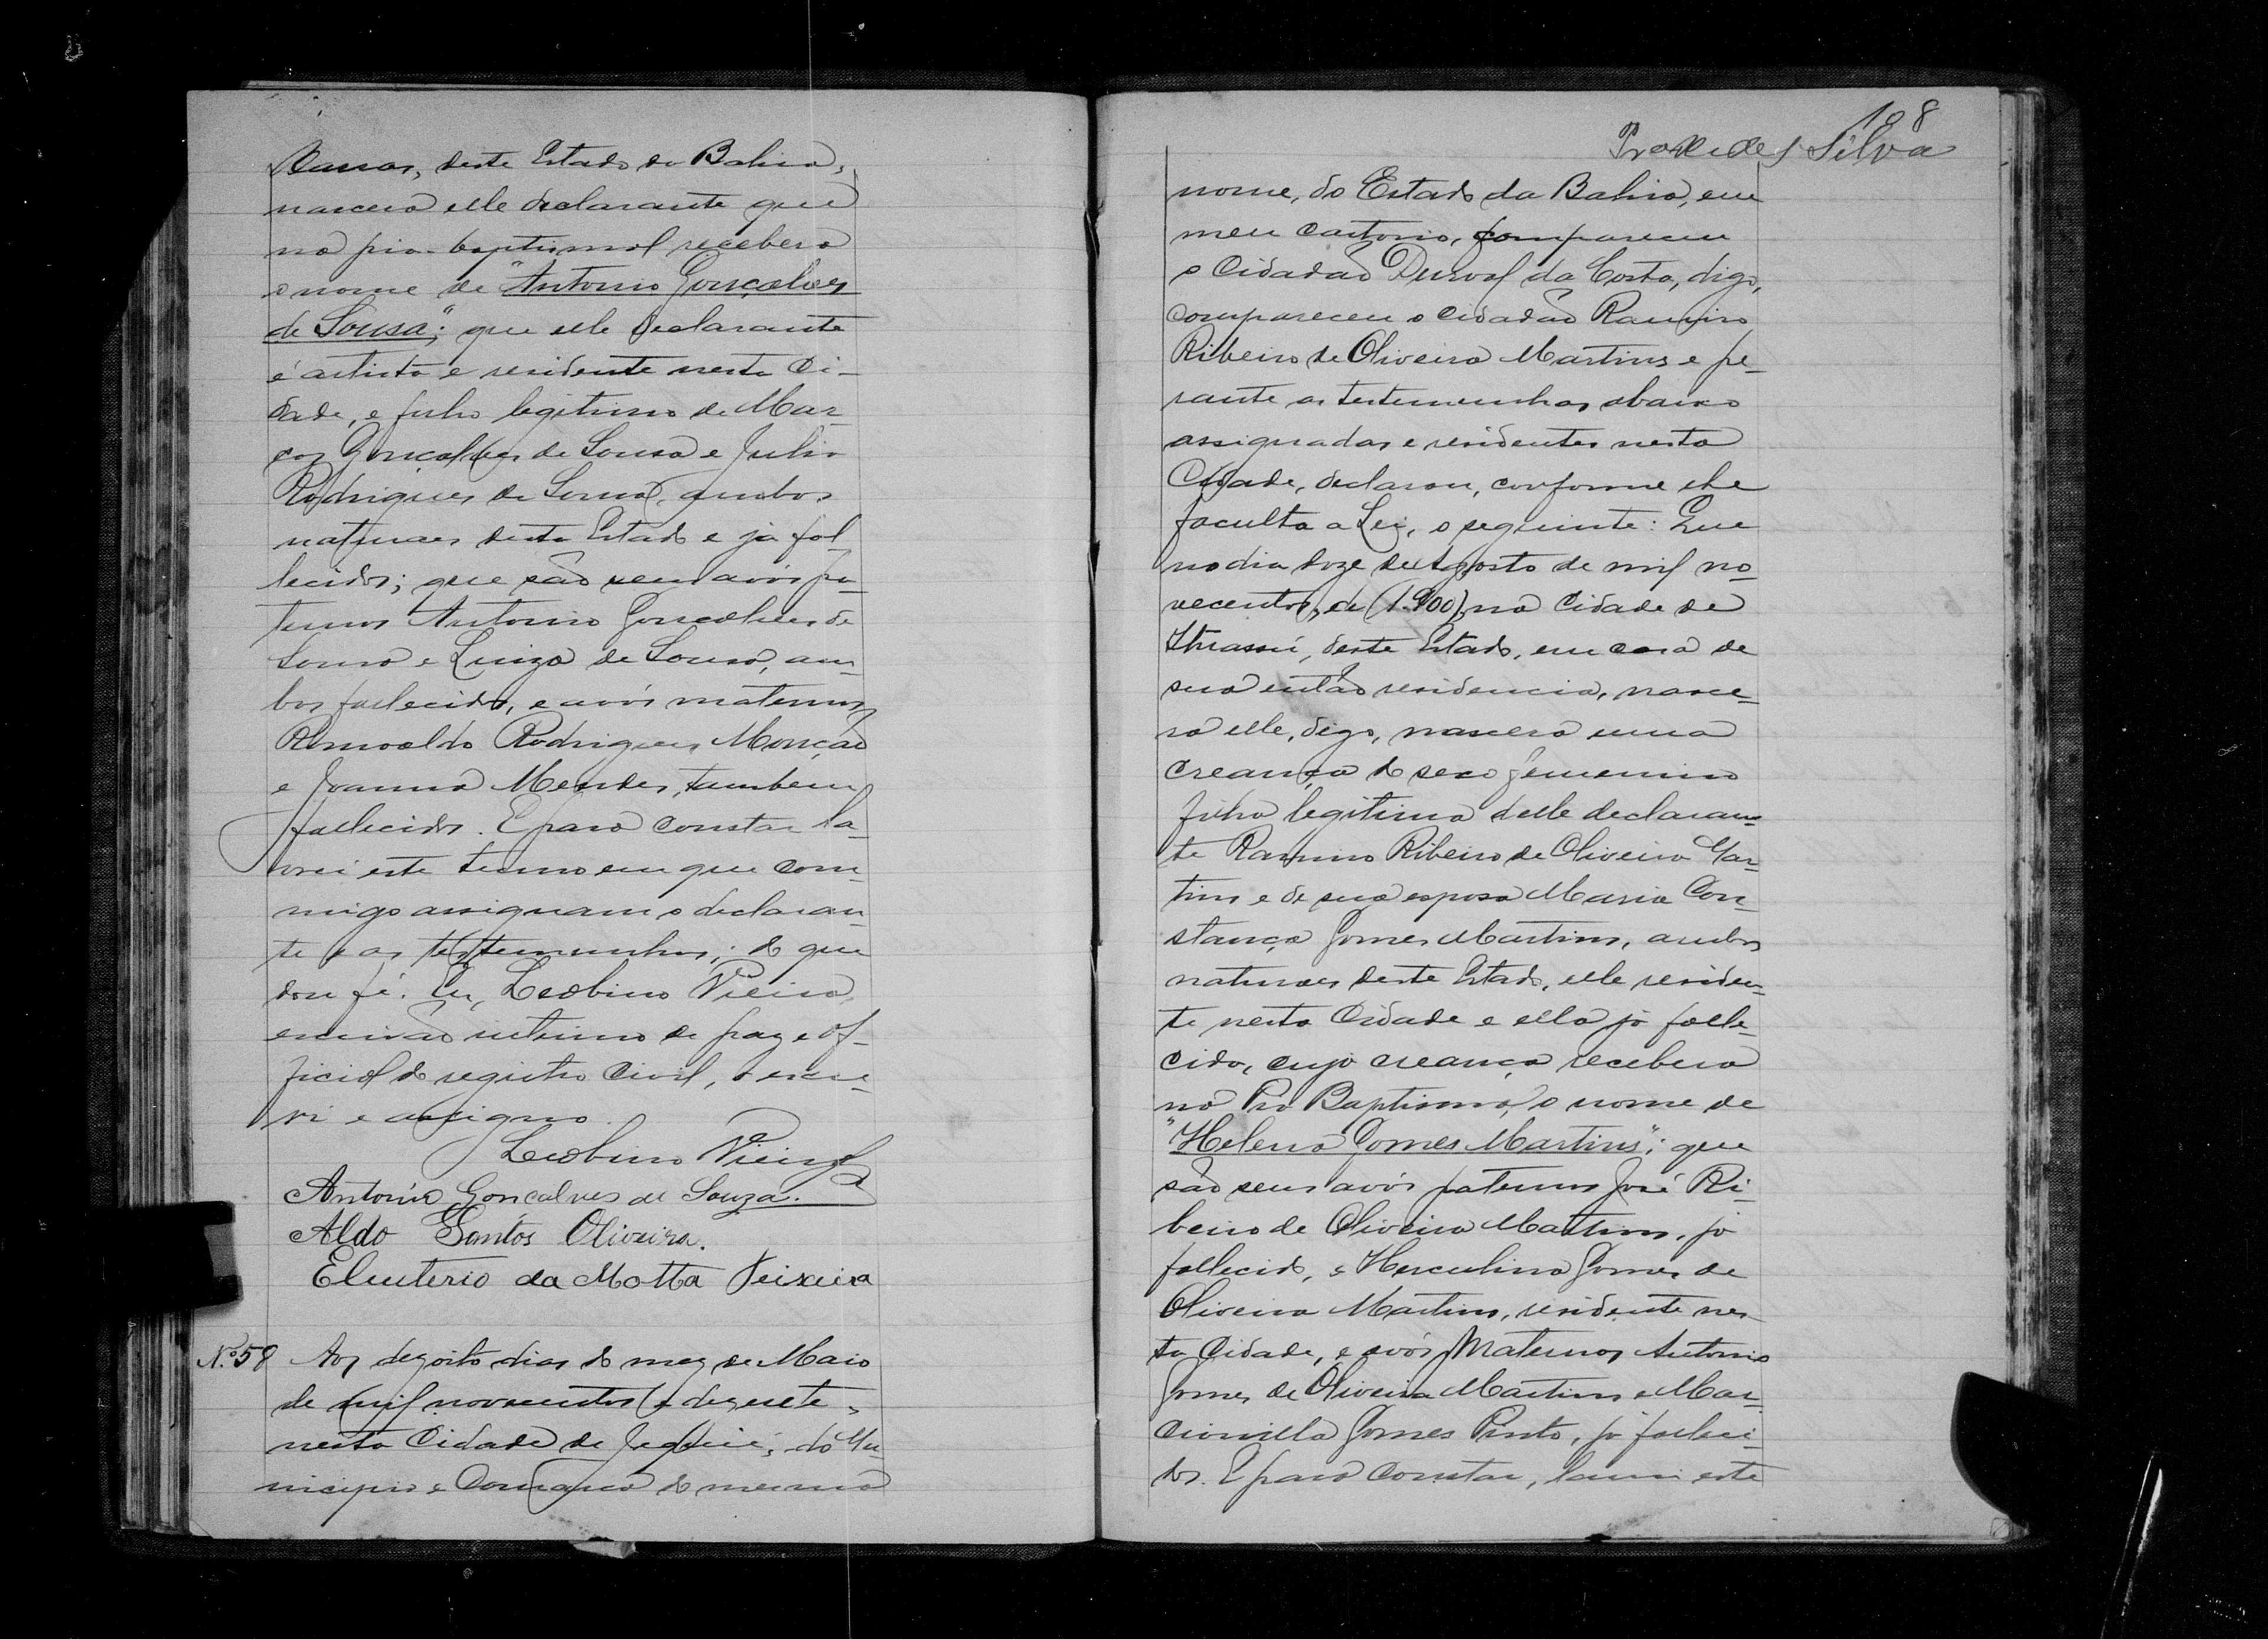 deste Estado da Bahia,
nascera elle declarante que
na pia baptismal recebera
o nome de "Antonio Gonçalves
de Sousa"; que elle declarante
é artista e residente nesta Ci-
dade, e filho legitimo de Mar-
cos Gonçalves de Sousa e Julia
Rodrigues de Sousa, ambos
naturaes deste Estado e já fal-
lecidos; que são seus avós pa-
ternos Antonio Gonçalves de
Sousa e Luiza de Sousa, am-
bos fallecidos, e avós maternos
Rodrigues Monção
e Joanna Mendes, tambem
fallecidos. E para constar la-
vrei este termo em que com-
migo assignam o declaran-
te e as testemunhas; do que
dou fé. Eu, Leobino Vieira,
escrivão interino de paz e Of-
ficial do registro Civil, o escre-
vi e assigno.
Leobino Vieira
Antonio Gonçalves de Souza.
Aldo Santos Oliveira.
Eleuterio da Motta Teixeira
Nº 58 Aos dezoito dias do mez de Maio
de mil novecentos e dezesete,
nesta Cidade de Jequié, do Mu-
nicipio e Comarca do mesmo
108
Praxedes Silva
nome, do Estado da Bahia, em
meu Cartorio, compareceu
o Cidadão Durval da Costa, digo,
compareceu o Cidadão Ramiro
Ribeiro de Oliveira Martins e pe-
rante as testemunhas abaixo
assignadas e residentes nesta
Cidade, declarou, conforme lhe
faculta a Lei, o seguinte: Que
no dia doze de Agosto de mil no-
vecentos, de (1.900), na Cidade de
Ituassú, deste Estado, em casa de
sua então residencia, nasce-
ra elle, digo, nascera uma
creança do sexo femenino
filha legitima delle declaran-
te Ramiro Ribeiro de Oliveira Mar-
tins e de sua esposa Maria Con-
stança Gomes Martins, ambos
naturaes deste Estado, elle residen-
te nesta Cidade e ella já falle-
cida, cuja creança recebera
na Pia Baptismal, o nome de
"Helena Gomes Martins"; que
são seus avós paternos José Ri-
beiro de Oliveira Martins, já
fallecido, e Herculina Gomes de
Oliveira Martins, residente nes-
ta Cidade, e avós Maternos Antonio
Gomes de Oliveira Martins e Mar-
cionilla Gomes Pinto, já falleci-
dos. E para constar, lavrei este